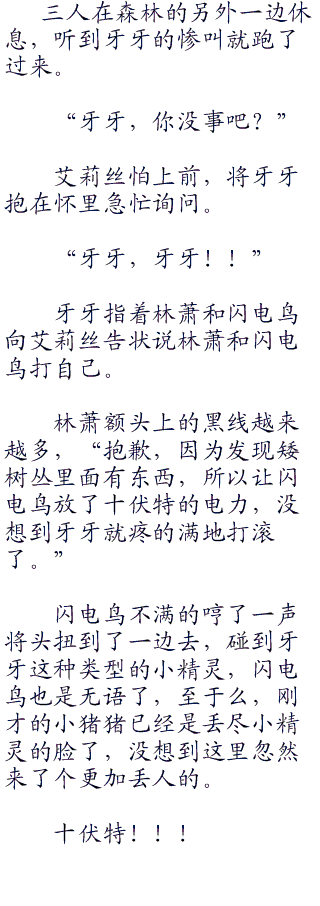 三人在森林的另外一边休
息，听到牙牙的惨叫就跑了
过来。
“牙牙，你没事吧？”
艾莉丝怕上前，将牙牙
抱在怀里急忙询问。
“牙牙，牙牙！！”
牙牙指着林萧和闪电鸟
向艾莉丝告状说林萧和闪电
鸟打自己。
林萧额头上的黑线越来
越多，“抱歉，因为发现矮
树丛里面有东西，所以让闪
电鸟放了十伏特的电力，没
想到牙牙就疼的满地打滚
了。”
闪电鸟不满的哼了一声
将头扭到了一边去，碰到牙
牙这种类型的小精灵，闪电
鸟也是无语了，至于么，刚
才的小猪猪已经是丢尽小精
灵的脸了，没想到这里忽然
来了个更加丢人的。
十伏特！！！